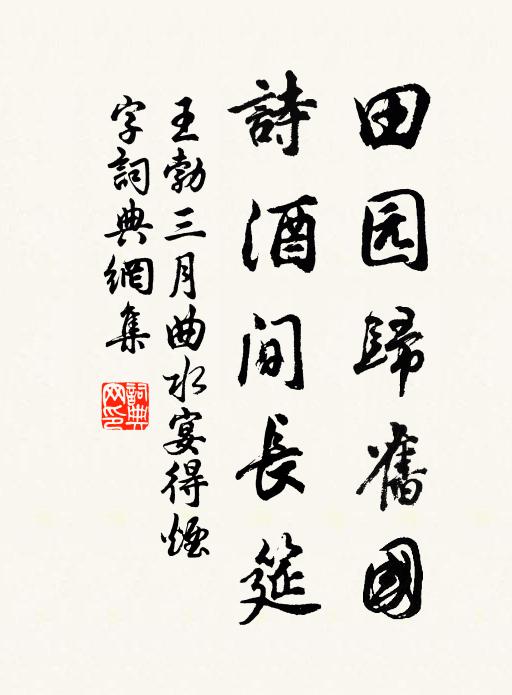 田园歸舊國
詩酒間長筵
王勃三月曲水宴得煙
字詞典網集
詞典
网印